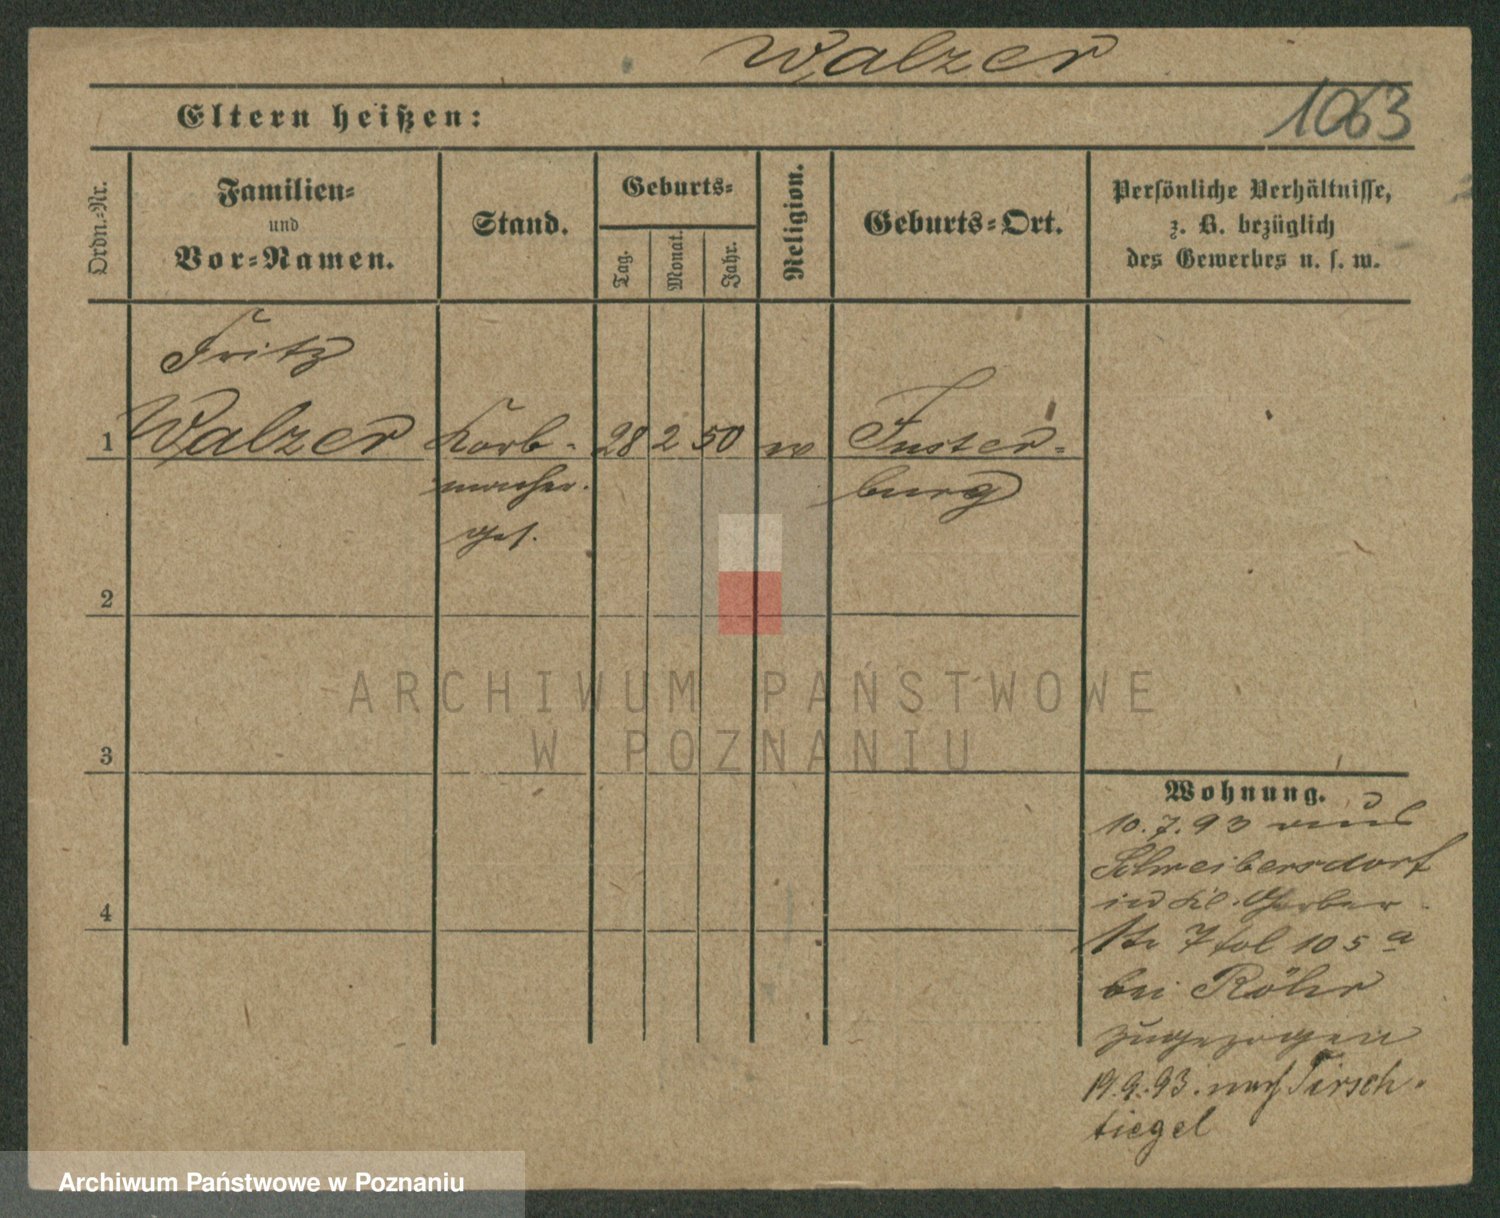 Walzer
Eltern heißen:
1063
Ordn.-Nr.
Familien-
und
Vor-Namen.
Stand.
Geburts-
Tag.
Monat.
Jahr.
Religion.
Geburts-Ort.
Persönliche Verhältnisse,
z. B. bezüglich
des Gewerbes u. s. w.
Fritz
1 Walzer Korb- 28 2 50 Inster-
macher. burg
ges.
2
3
4
Wohnung.
10.7.93 aus
Schreibersdorf
in Kl. Gerber
Str 7 tol 105 a
bei Röhr
zugezogen
19.9.93. nach Tirsch-
tiegel
ARCHIWUM PAŃSTWOWE
W POZNANIU
Archiwum Państwowe w Poznaniu